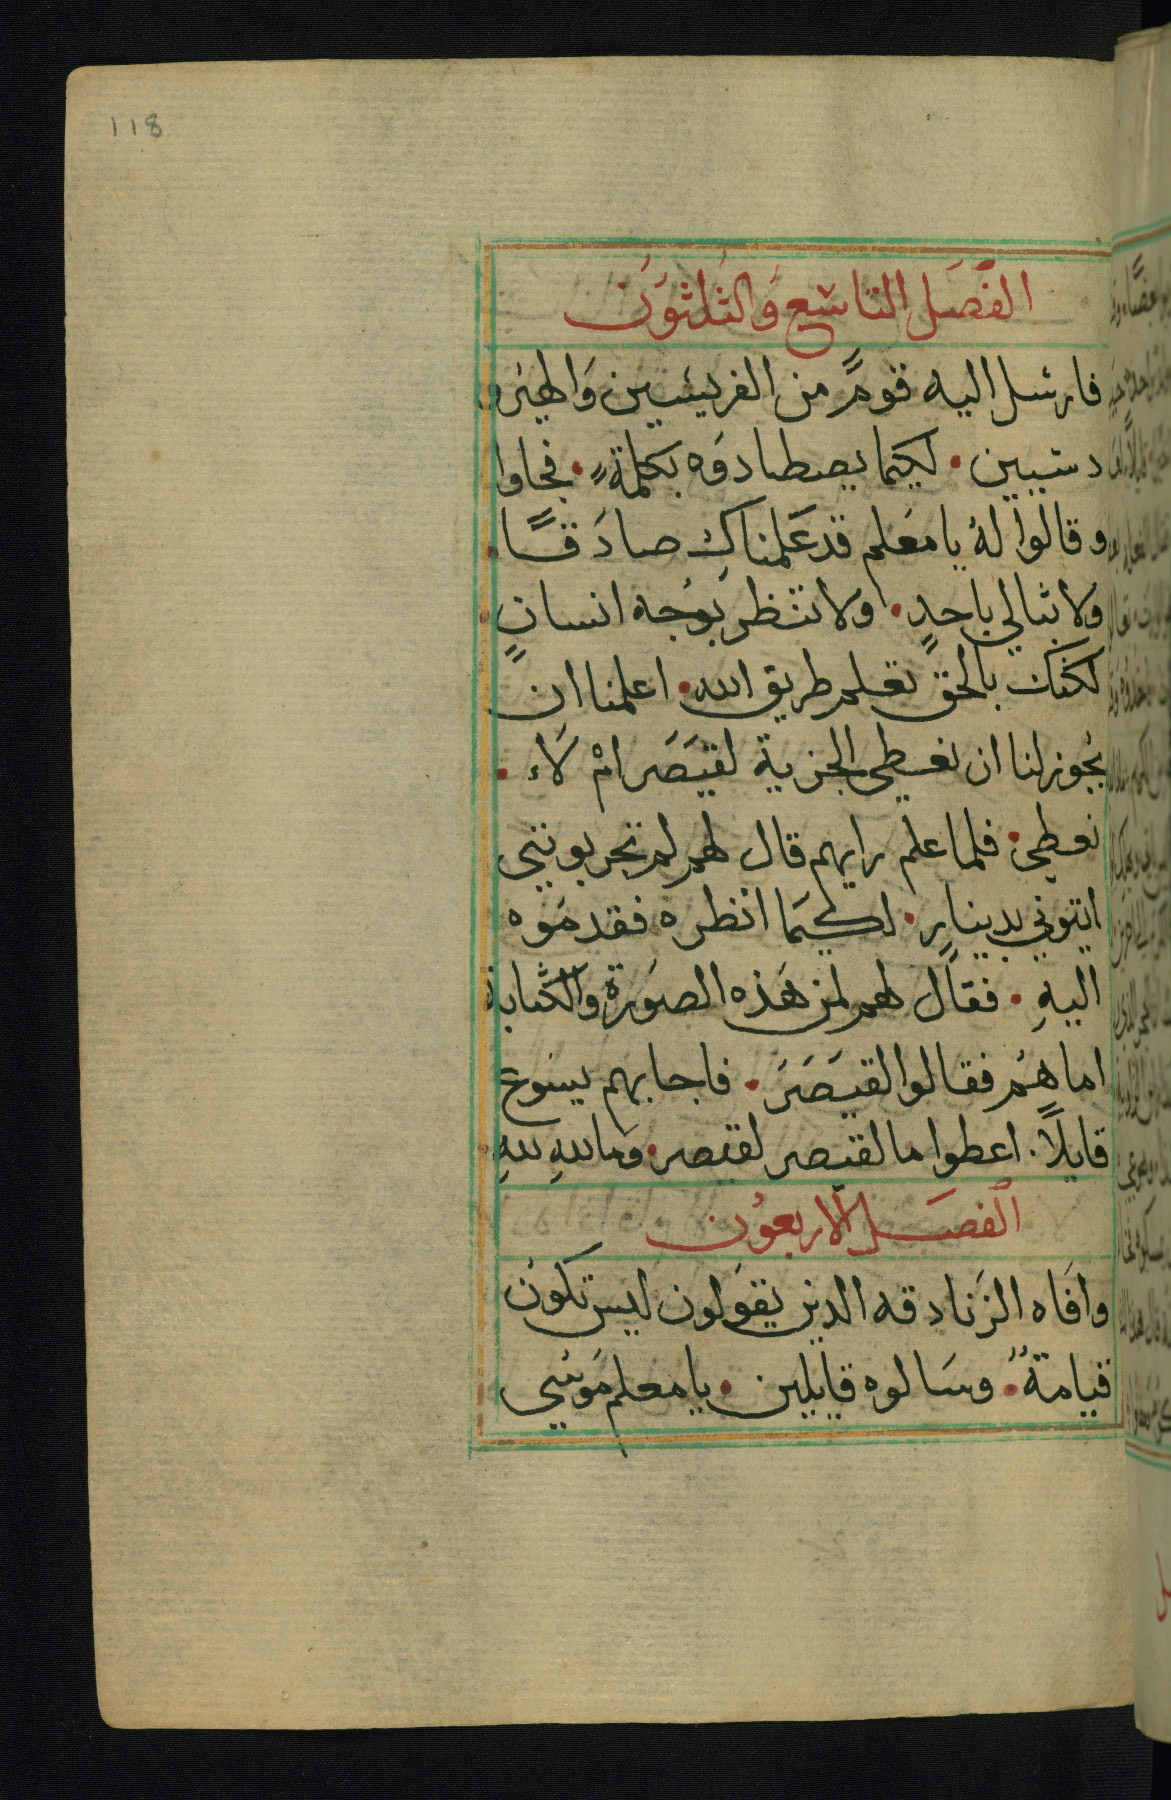 118
الفصل التاسع والثلثون
فارسل اليه قومٌ من الفريسيين والهيرو
دسيين. لكيما يصطادوه بكلمةٍ. فجاوا
وقالوا له يا معلم قد علمناك صادقًا.
ولا تبالي باحدٍ. ولا تنظر بوجه انسانٍ.
لكنك بالحق تعلم طريق الله. اعلمنا ان
يجوز لنا ان نعطي الجزية لقيصر امْ لاء.
نعطي. فلما علم رايهم قال لهم لم تجربونني
ايتوني بدينارٍ. لكيما انظره فقدموه
اليهِ. فقال لهم لمن هذه الصورة والكتابة
اما هُم فقالوا لقيصر. فاجابهم يسوع
قايلاً. اعطوا ما لقيصر لقيصر. وما للهِ للهِ.
الفصل الاربعون
وافاه الزنادقه الدين يقولون ليس تكون
قيامةٌ. وسالوه قايلين. يا معلم موسي